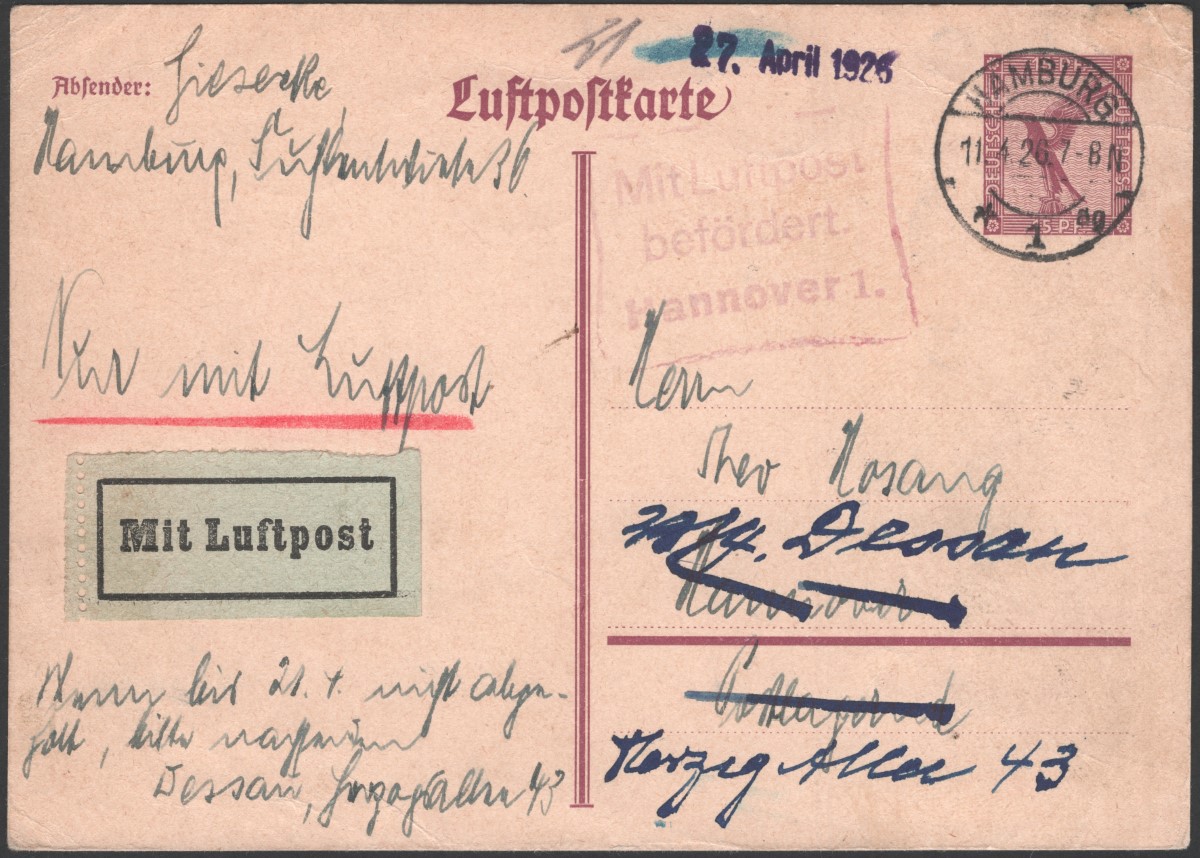 Absender: Giesecke,
Hamburg, 36
Luftpostkarte
21
27. April 1926
HAMBURG
11.4.26.7-8 N
* 1
DEUTSCHE
Mit Luftpost
befördert.
Hannover 1.
Nur mit Luftpost
Mit Luftpost
Wenn bis 21.4. nicht abge-
holt, bitte nachsenden
Dessau, Herzogallee 43
Herrn
Theo Rosang
Dessau
Hannover
Postlagernd
Herzog Allee 43